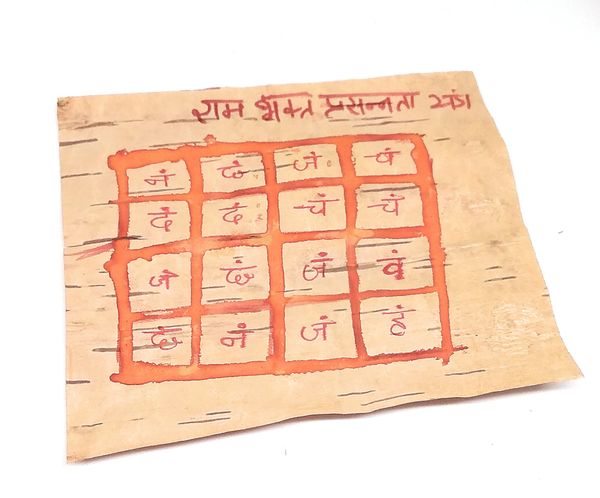 राम भक्त प्रसन्नता यंत्र
नं छं जं वं
दं दं चं चं
जं छं जं वं
छं नं जं हं